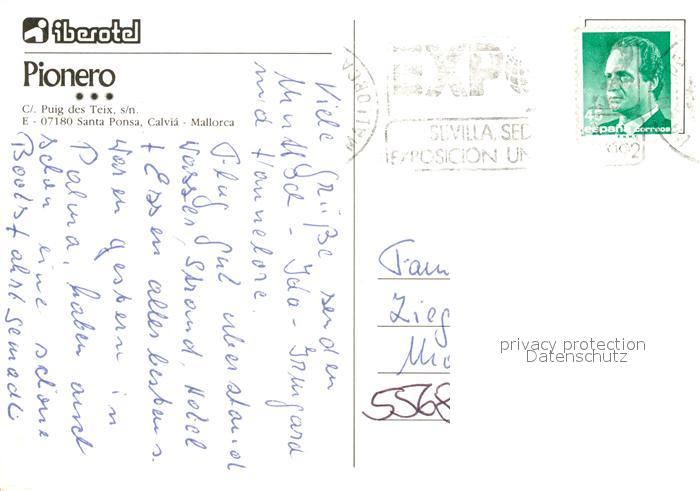 iberotel
Pionero
C/. Puig des Teix, s/n.
E - 07180 Santa Ponsa, Calviá - Mallorca
Viele Grüße senden
Mutter - Ida - Irmgard
und Hannelore.
Flug gut überstanden
Wasser, Strand, Hotel
+ Essen alles bestens.
Waren gestern in
Palma, haben auch
schon eine schöne
Bootsfahrt gemacht
MALLORCA
EXPO
SEVILLA, SED
EXPOSICION UN
1992
45
españa correos
Fam
Zieg
5568
privacy protection
Datenschutz